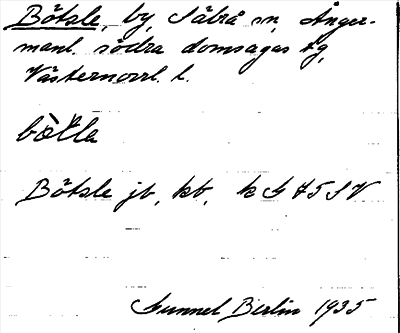 Bölsle, by, Säbrå sn, Ånger-
manl. södra domsagas tg,
Västernorrl. l.
Bölsle jb, kb,
Gunnel Berlin 1935